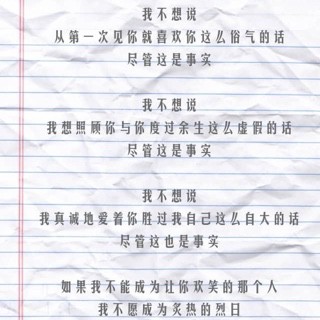 我不想说
从第一次见你就喜欢你这么俗气的话
尽管这是事实
我不想说
我想照顾你与你度过余生这么虚假的话
尽管这是事实
我不想说
我真诚地爱着你胜过我自己这么自大的话
尽管这也是事实
如果我不能成为让你欢笑的那个人
我不愿成为炙热的烈日